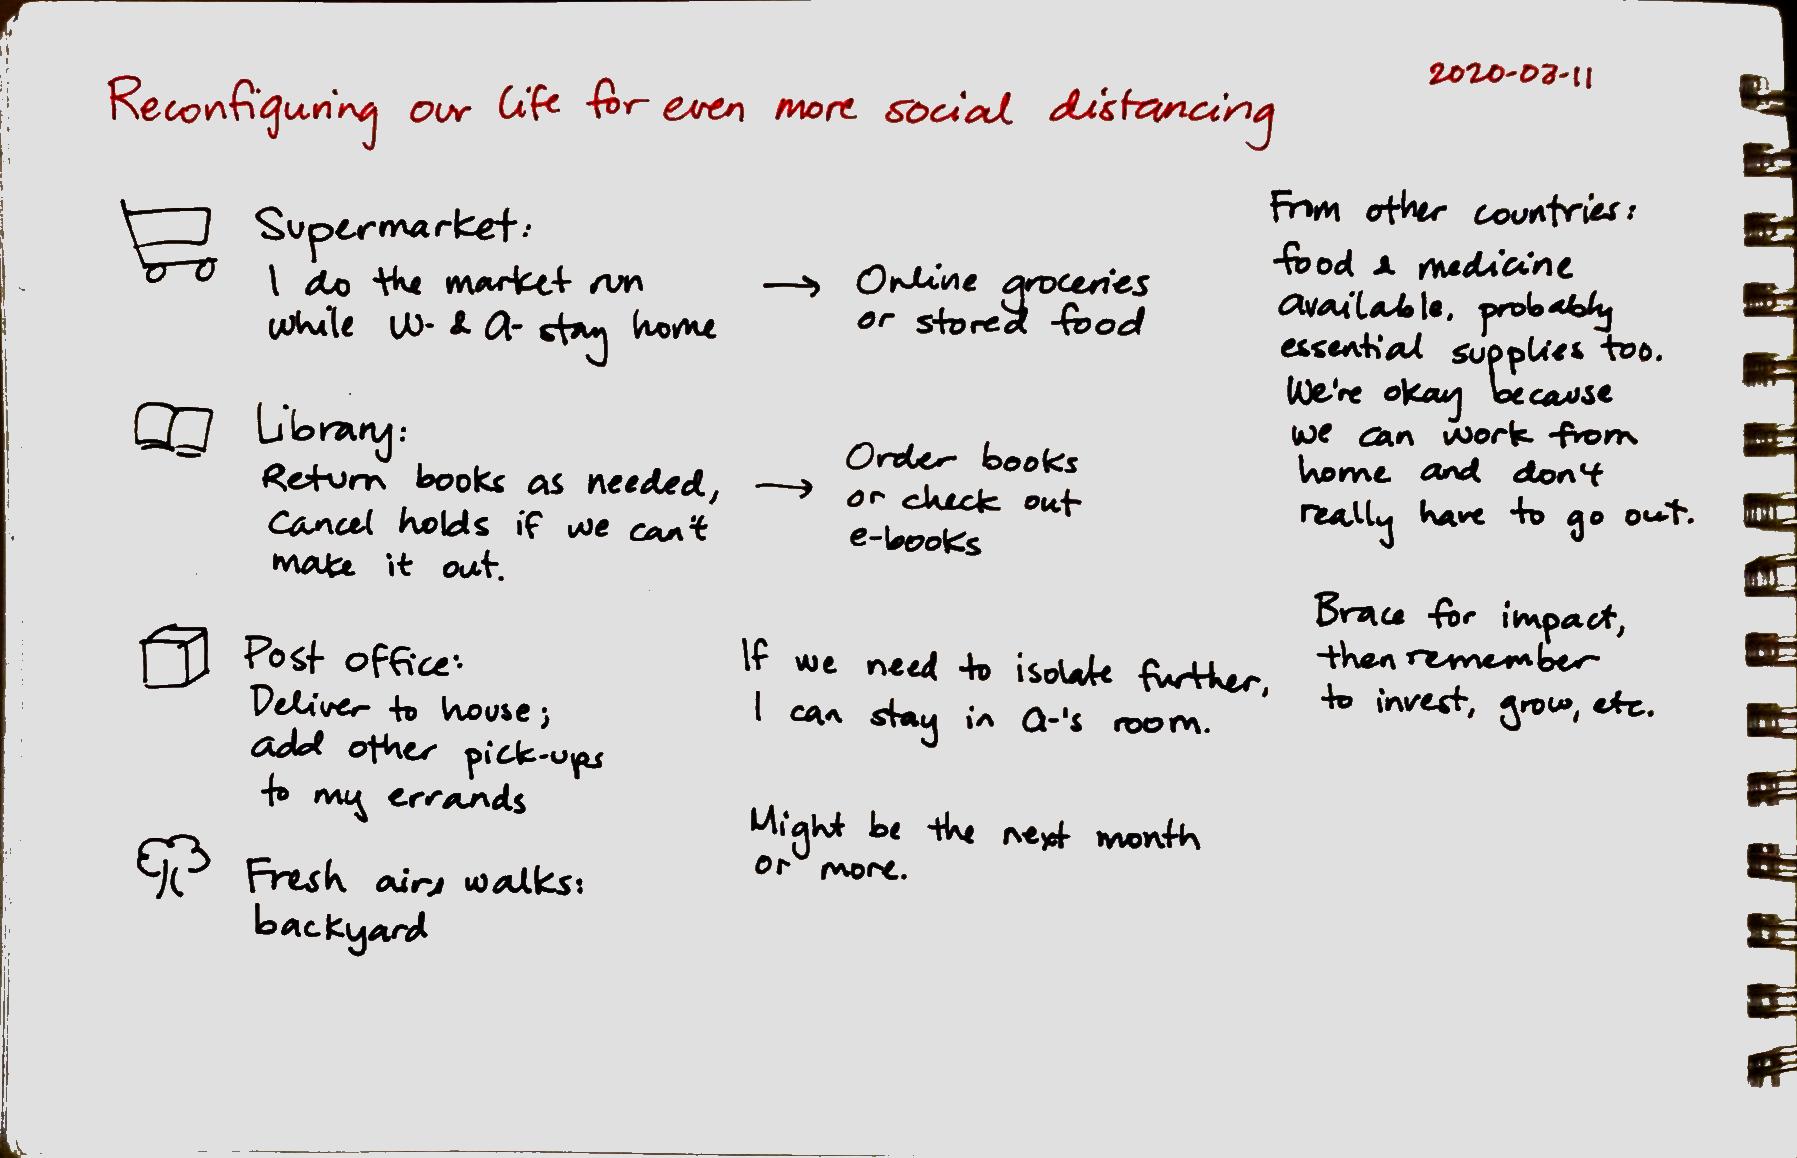 2020-03-11
Reconfiguring our life for even more social distancing
Supermarket:
I do the market run
while W- & A- stay home
→ Online groceries
or stored food
Library:
Return books as needed,
cancel holds if we can't
make it out.
→ Order books
or check out
e-books
Post office:
Deliver to house;
add other pick-ups
to my errands
Fresh air, walks:
backyard
If we need to isolate further,
I can stay in A-'s room.
Might be the next month
or more.
From other countries:
food & medicine
available, probably
essential supplies too.
We're okay because
we can work from
home and don't
really have to go out.
Brace for impact,
then remember
to invest, grow, etc.